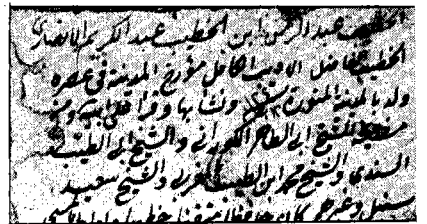 الخطيب عبد الرحمن ابن الخطيب عبد الكريم الانصاري
الخطيب الفاضل الاديب الكامل مؤرخ المدينة في عصره
ولد بالمدينة المنورة ونشأ بها وقرأ على
الشيخ ابي الطاهر الكوراني والشيخ ابي الطيب
السندي والشيخ محمد ابن الطيب المغربي والشيخ سعيد
سنبل وغيرهم كان